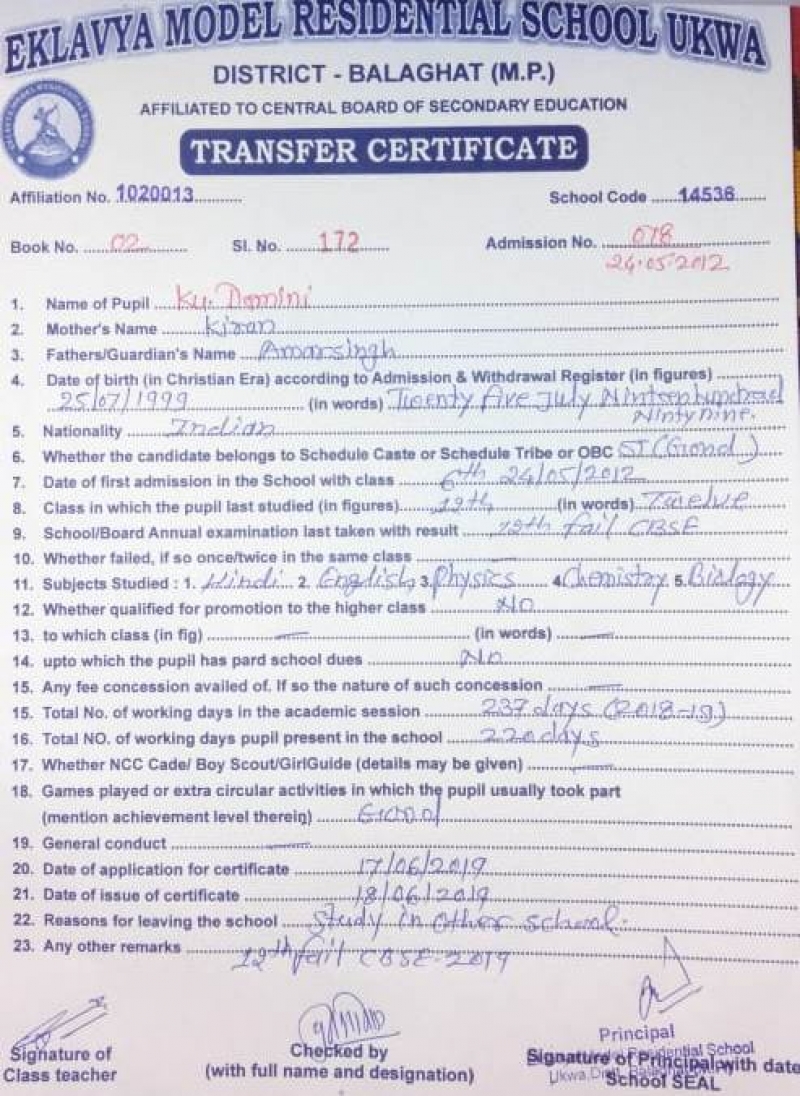 EKLAVYA MODEL RESIDENTIAL SCHOOL UKWA
DISTRICT - BALAGHAT (M.P.)
AFFILIATED TO CENTRAL BOARD OF SECONDARY EDUCATION
TRANSFER CERTIFICATE
Affiliation No. 1020013 School Code 14536
Book No. 02 Sl. No. 172 Admission No. 078
24.05.2012
1. Name of Pupil Ku. Domini
2. Mother's Name Kiran
3. Fathers/Guardian's Name Amarsingh
4. Date of birth (in Christian Era) according to Admission & Withdrawal Register (in figures)
25/07/1999 (in words) Twenty five July Ninteen hundred
Ninty nine.
5. Nationality Indian
6. Whether the candidate belongs to Schedule Caste or Schedule Tribe or OBC ST (Gond)
7. Date of first admission in the School with class 6th 24/05/2012
8. Class in which the pupil last studied (in figures) 12th (in words) Twelve
9. School/Board Annual examination last taken with result 12th fail CBSE
10. Whether failed, if so once/twice in the same class
11. Subjects Studied : 1. Hindi 2. English 3. Physics 4 Chemistry 5. Biology
12. Whether qualified for promotion to the higher class No
13. to which class (in fig) — (in words) —
14. upto which the pupil has pard school dues No
15. Any fee concession availed of. If so the nature of such concession —
15. Total No. of working days in the academic session 237 days (2018-19)
16. Total NO. of working days pupil present in the school 220 days
17. Whether NCC Cade/ Boy Scout/GirlGuide (details may be given) —
18. Games played or extra circular activities in which the pupil usually took part
(mention achievement level therein) Good
19. General conduct —
20. Date of application for certificate 17/06/2019
21. Date of issue of certificate 18/06/2019
22. Reasons for leaving the school Study in other school.
23. Any other remarks 12th fail CBSE-2019
Signature of
Class teacher
Checked by
(with full name and designation)
Principal
Signature of Principal with date
School SEAL